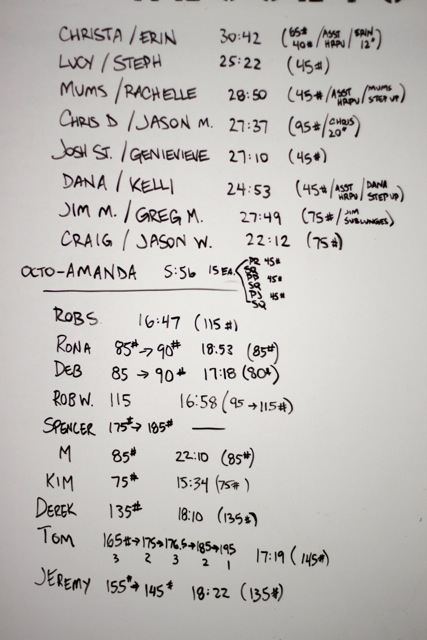 CHRISTA / ERIN 30:42 (65# 40# / ASST HRPU / ERIN 12")
LUCY / STEPH 25:22 (45#)
MUMS / RACHELLE 28:50 (45# / ASST HRPU / MUMS STEP UP)
CHRIS D / JASON M. 27:37 (95# / CHRIS 20")
JOSH ST. / GENIEVIEVE 27:10 (45#)
DANA / KELLI 24:53 (45# / ASST HRPU / DANA STEP UP)
JIM M. / GREG M. 27:49 (75# / JIM SUB LUNGES)
CRAIG / JASON W. 22:12 (75#)
OCTO-AMANDA 5:56 15 EA. PR 45# SQ PP 45# SQ PJ 45# SQ
ROB S. 16:47 (115#)
RONA 85# → 90# 18:53 (85#)
DEB 85 → 90# 17:18 (80#)
ROB W. 115 16:58 (95 → 115#)
SPENCER 175# → 185# —
M 85# 22:10 (85#)
KIM 75# 15:34 (75#)
DEREK 135# 18:10 (135#)
TOM 165# → 175 → 176.5 → 185 → 195 17:19 (145#)
3 2 3 2 1
JEREMY 155# → 145# 18:22 (135#)